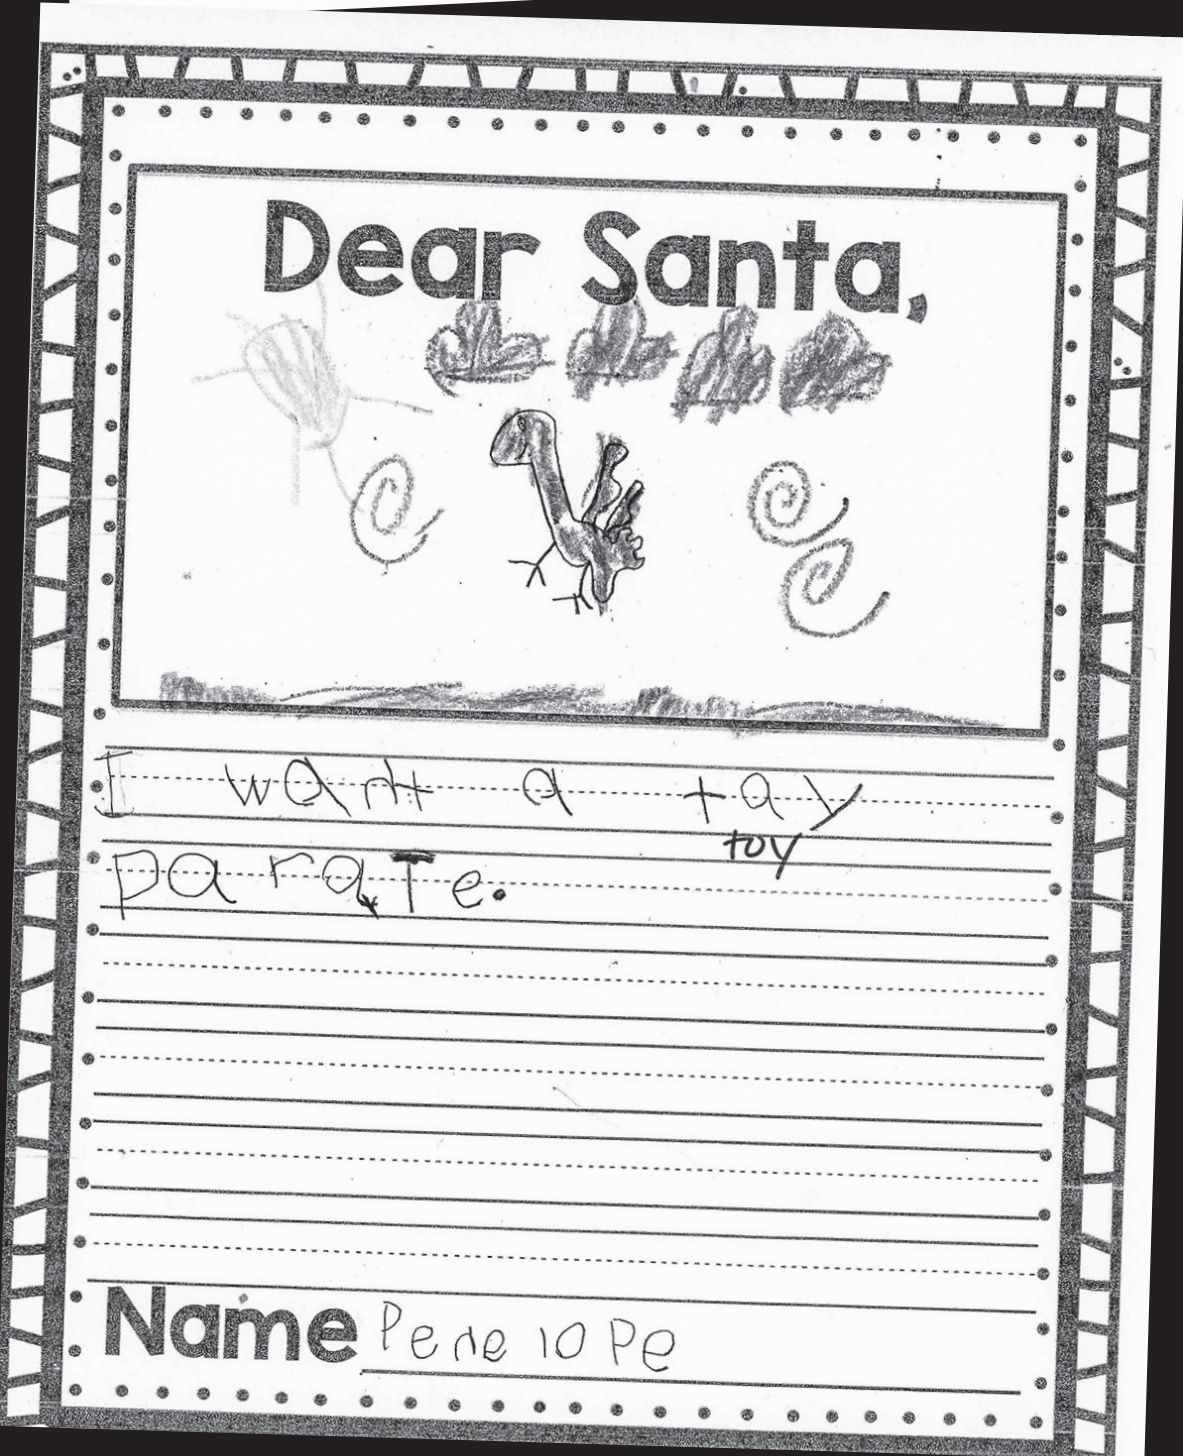 Dear Santa,
I want a tay
toy
parate.
Name Penelope